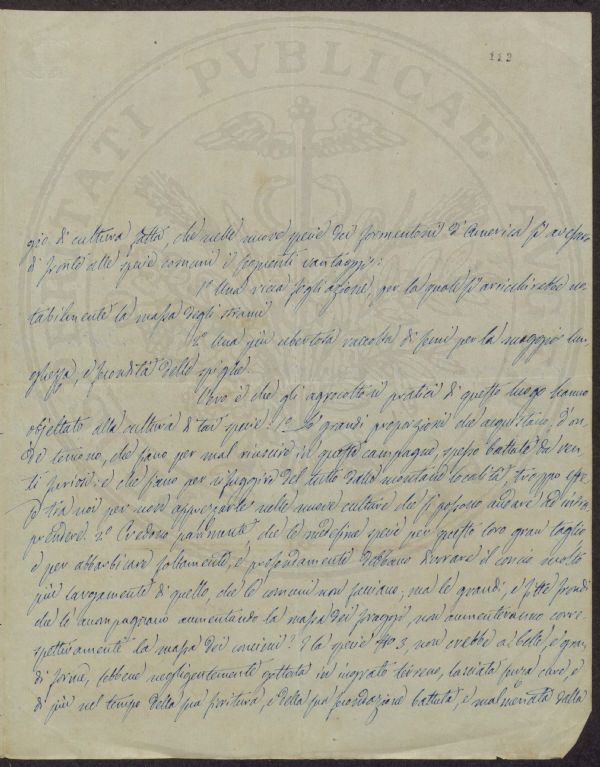 112
gio di cultura fatta, che nelle nuove specie dei formentoni d'America si avessero
di fronte alle specie comuni i seguenti vantaggi:
1° Una ricca fogliazione, per la quale si arricchirebbe no-
tabilmente la massa degli strami
2° Una più ubertosa raccolta di semi per la maggior lun-
ghezza, e fecondità delle spighe.
Vero è che gli agricoltori pratici di questo luogo hanno
obiettato alla cultura di tai specie: 1° Le grandi proporzioni che acquistano, d'on-
de temono, che sano per mal riuscire in queste campagne, spesso battute da ven-
ti furiosi: e che siano per rifuggire del tutto dalle montane località, troppo
tra noi per non apprezzarle nelle nuove culture che si possono andare ad intra-
prendere. 2° Credono parimente che le medesime specie per questo loro gran taglio
e per abbarbicare foltamente, e profondamente debbano divorare il concio molto
più largamente di quello, che le comuni non facciano; ma le grandi, e fitte frondi
da le accompagnano aumentando la massa dei foraggi, non aumenteranno corre-
spettivamente la massa dei concimi? E la specie N° 3, non crebbe a belle, e gran-
di forme, sebbene negligentemente gettata in ingrato terreno, lasciata senza cure, e
di più nel tempo della sua fioritura, e della sua fecondazione battuta, e malmenata dalla
PVBLICAE